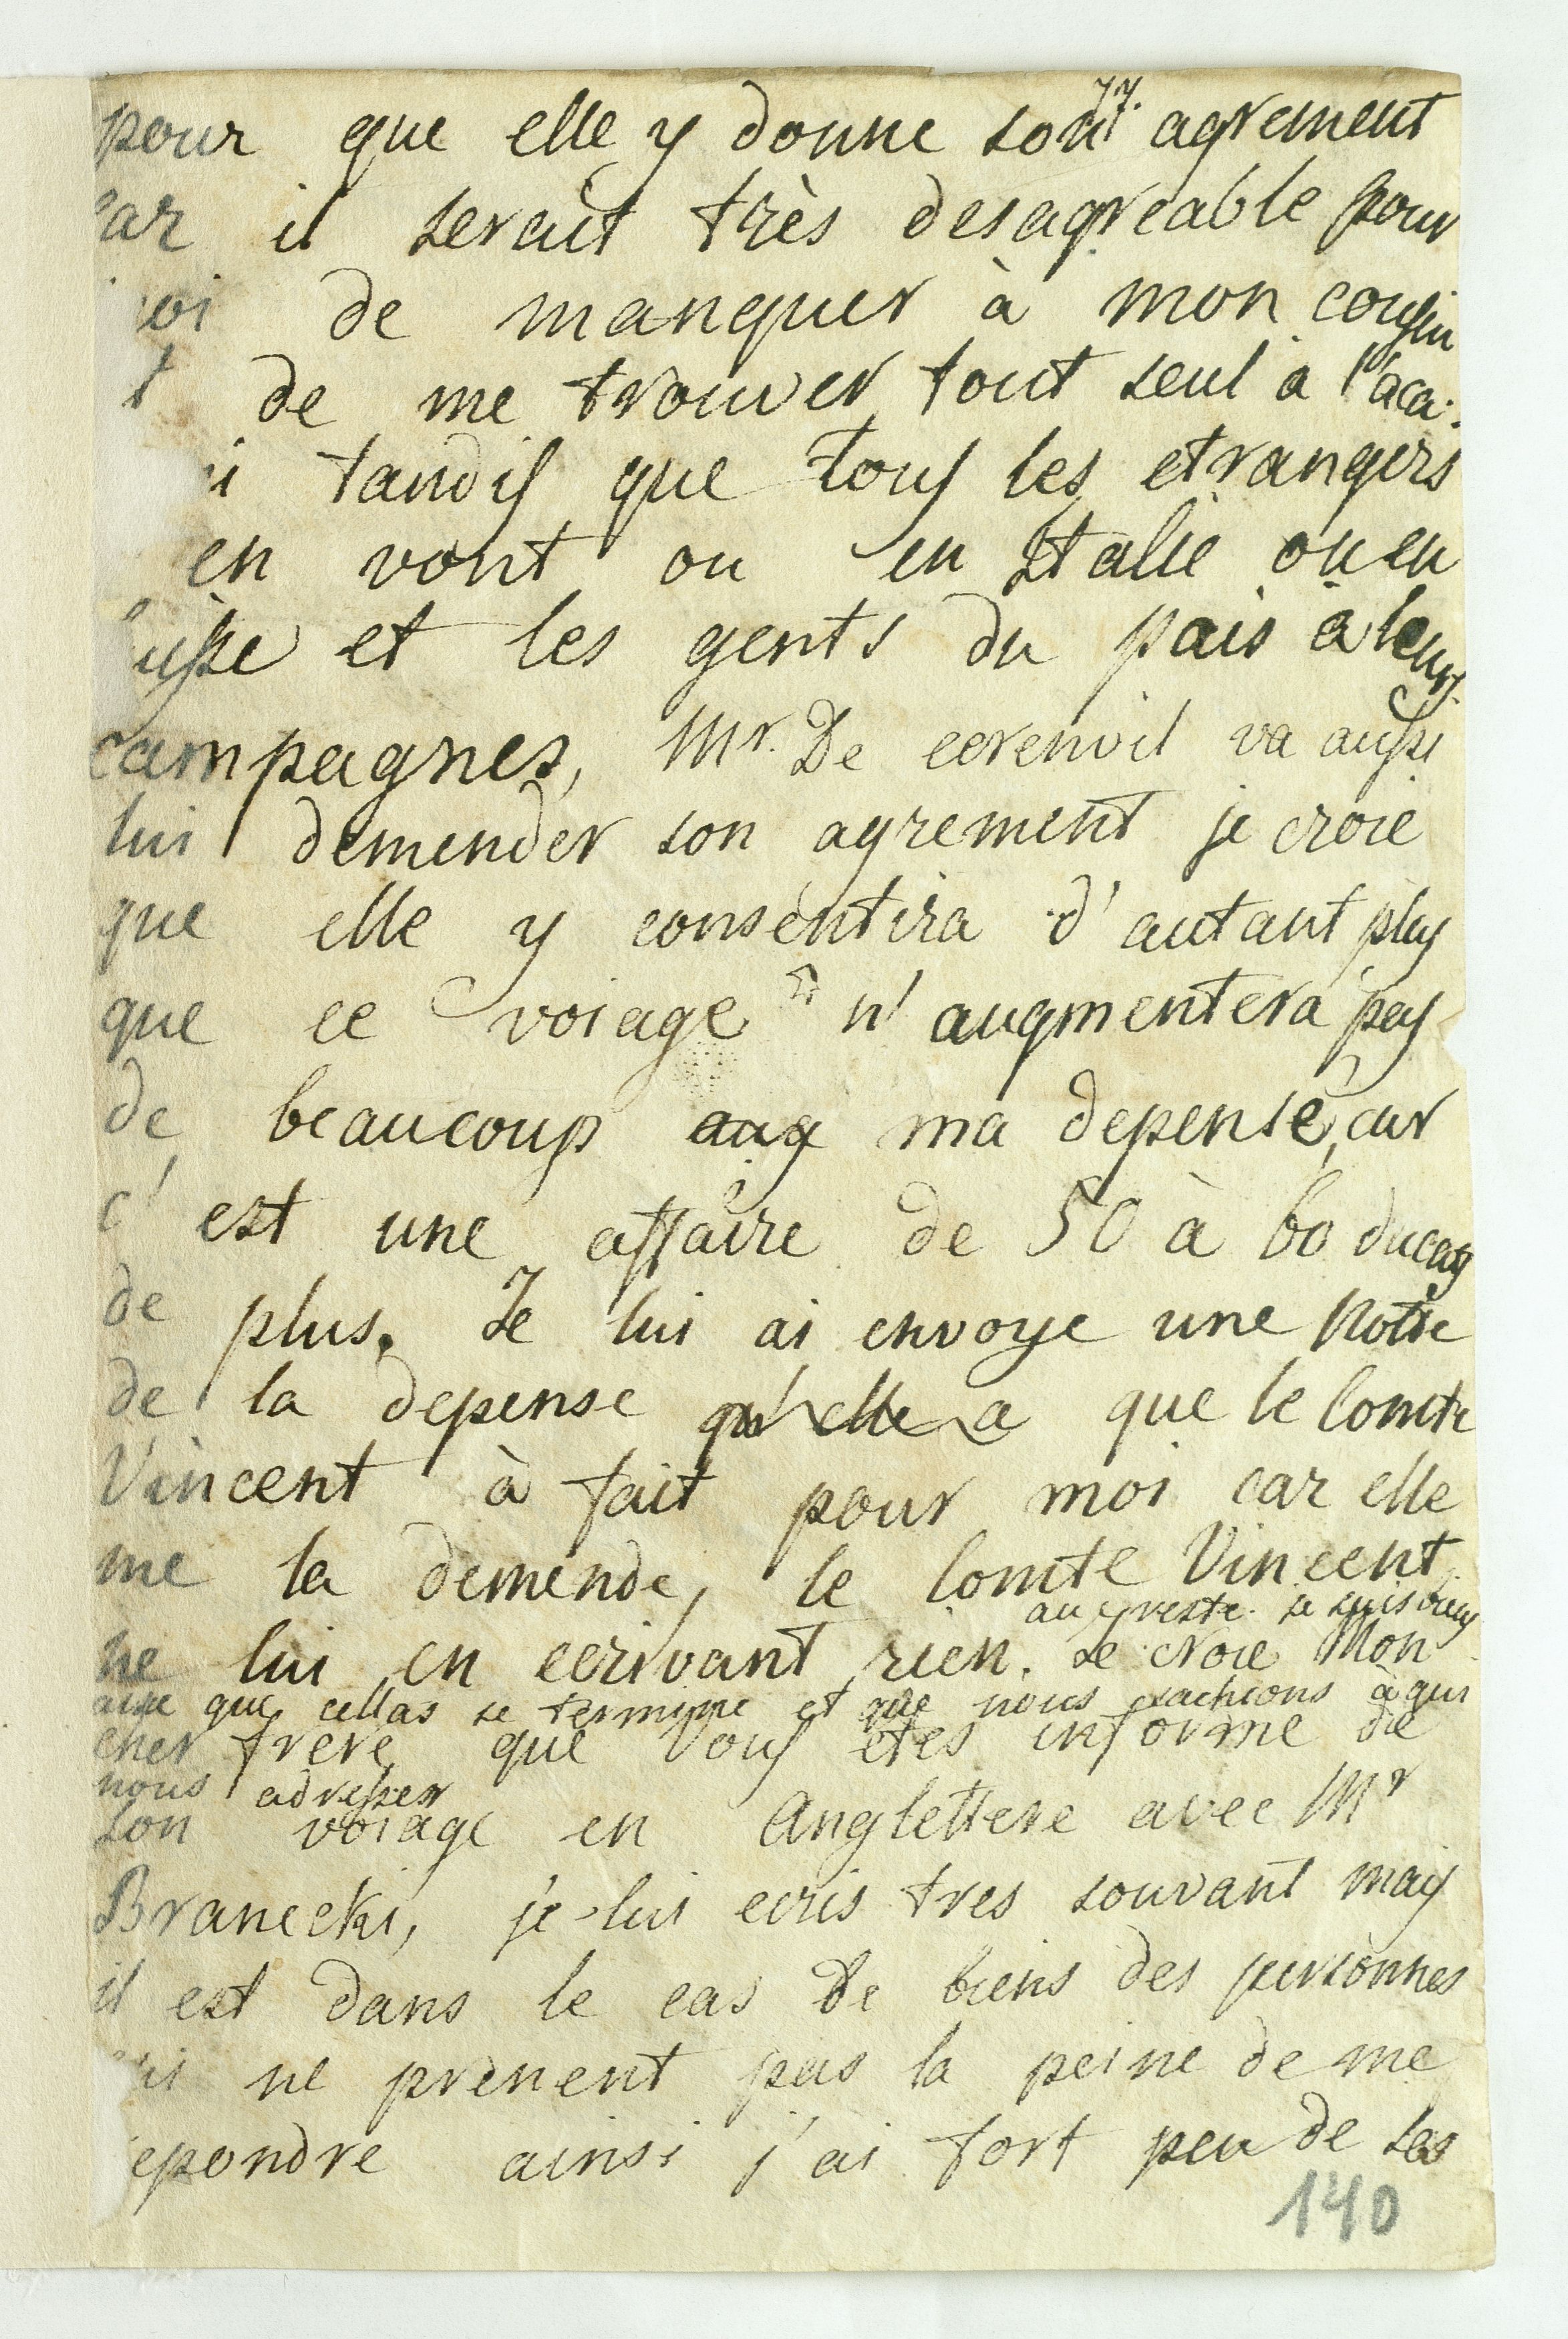 77.
pour que elle y donne son agrement
car il serait très desagreable pour
oi de manquer à mon cousin
t de me trouver tout seul a l'aca.
i tandis que tous les etrangers
en vont ou en Italie ou en
uisse et les gents du pais à leurs
campagnes, Mr. De ecrenvil va aussi
lui demender son agrement je croie
que elle y consentira d'autant plus
que ce voiage n' augmentera pas
de beaucoup aug ma depense, car
c' est une affaire de 50 à 60 ducas
de plus. Je lui ai envoye une Notte
de la depense qu'elle a que le Comte
Vincent à fait pour moi car elle
me la demende, le Comte Vincent
ne lui en ecrivant rien. au reste je suis bien
aise que cellas se termine et que nous sachions à qui
nous adresser
Je croie Mon
cher frere que vous etes informe de
son voiage en Anglettere avec Mr
Branecki, je lui ecris tres souvant mais
il est dans le cas de biens des personnes
ui ne prenent pas la peine de me
epondre ainsi j'ai fort peu de ses
140